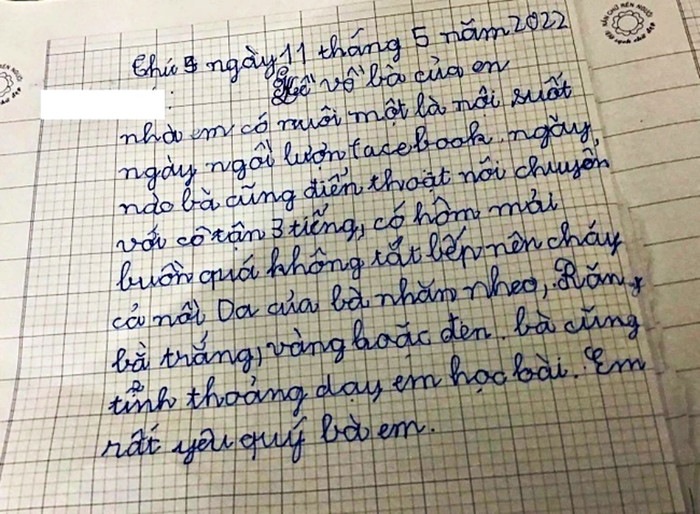 Thứ 5 ngày 11 tháng 5 năm 2022
Kể về bà của em
nhà em có nuôi một là nôi suốt
ngày ngồi lượn facebook. ngày
nào bà cũng điển thoặt nói chuyện
với cô tận 3 tiếng, có hôm mải
buôn quá không tắt bếp nên cháy
cả nồi Da của bà nhăn nheo, Răn
bà trắng, vàng hoặc đen. bà cũng
tỉnh thoảng dạy em học bài. Em
rất yêu quý bà em.